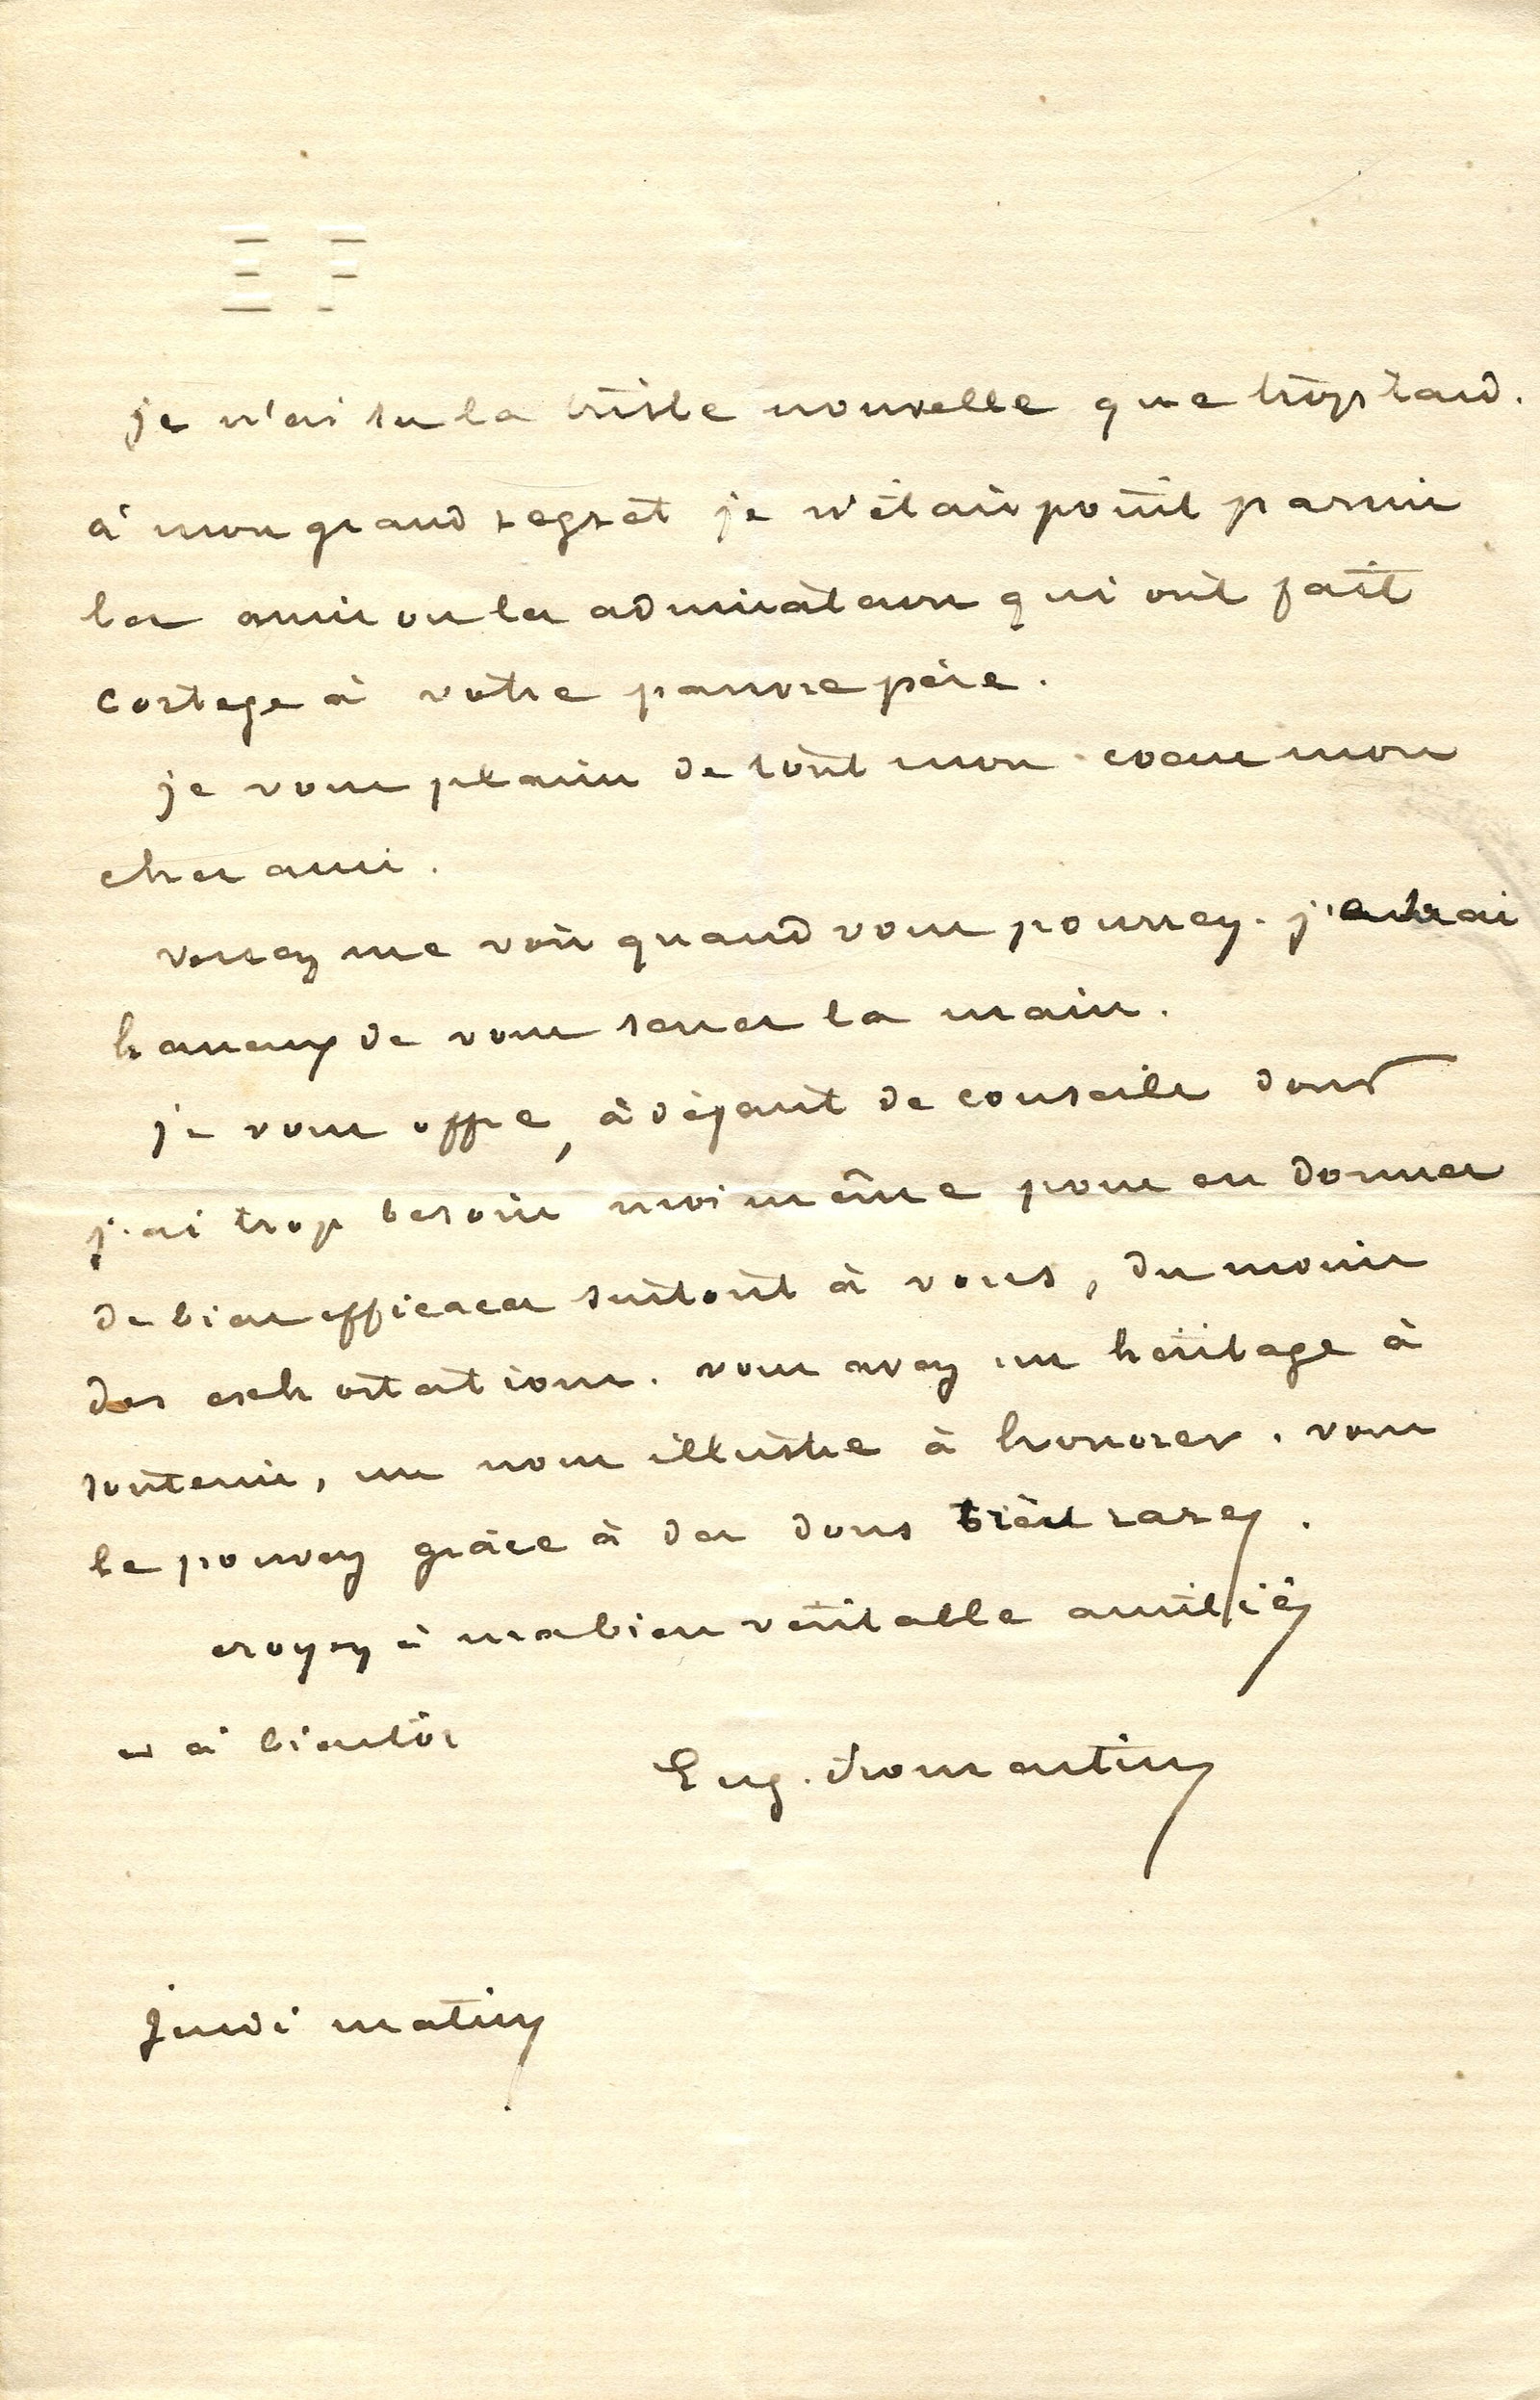 E F
je n'ai su la triste nouvelle que trop tard.
à mon grand regret je n'étais point parmi
les amis ou les admirateurs qui ont fait
cortege à votre pauvre père.
je vous plains de tout mon coeur mon
cher ami.
venez me voir quand vous pourrez. j'
heureux de vous serrer la main.
je vous offre, à défaut de conseils dont
j'ai trop besoin moi même pour en donner
de bien efficaces surtout à vous, du moins
des exhortations. vous avez un héritage à
soutenir, un nom illustre à honorer. vous
le pouvez grâce à des dons très rares.
croyez à ma bien véritable amitié
et à bientôt
Eug. Fromentin
jeudi matin